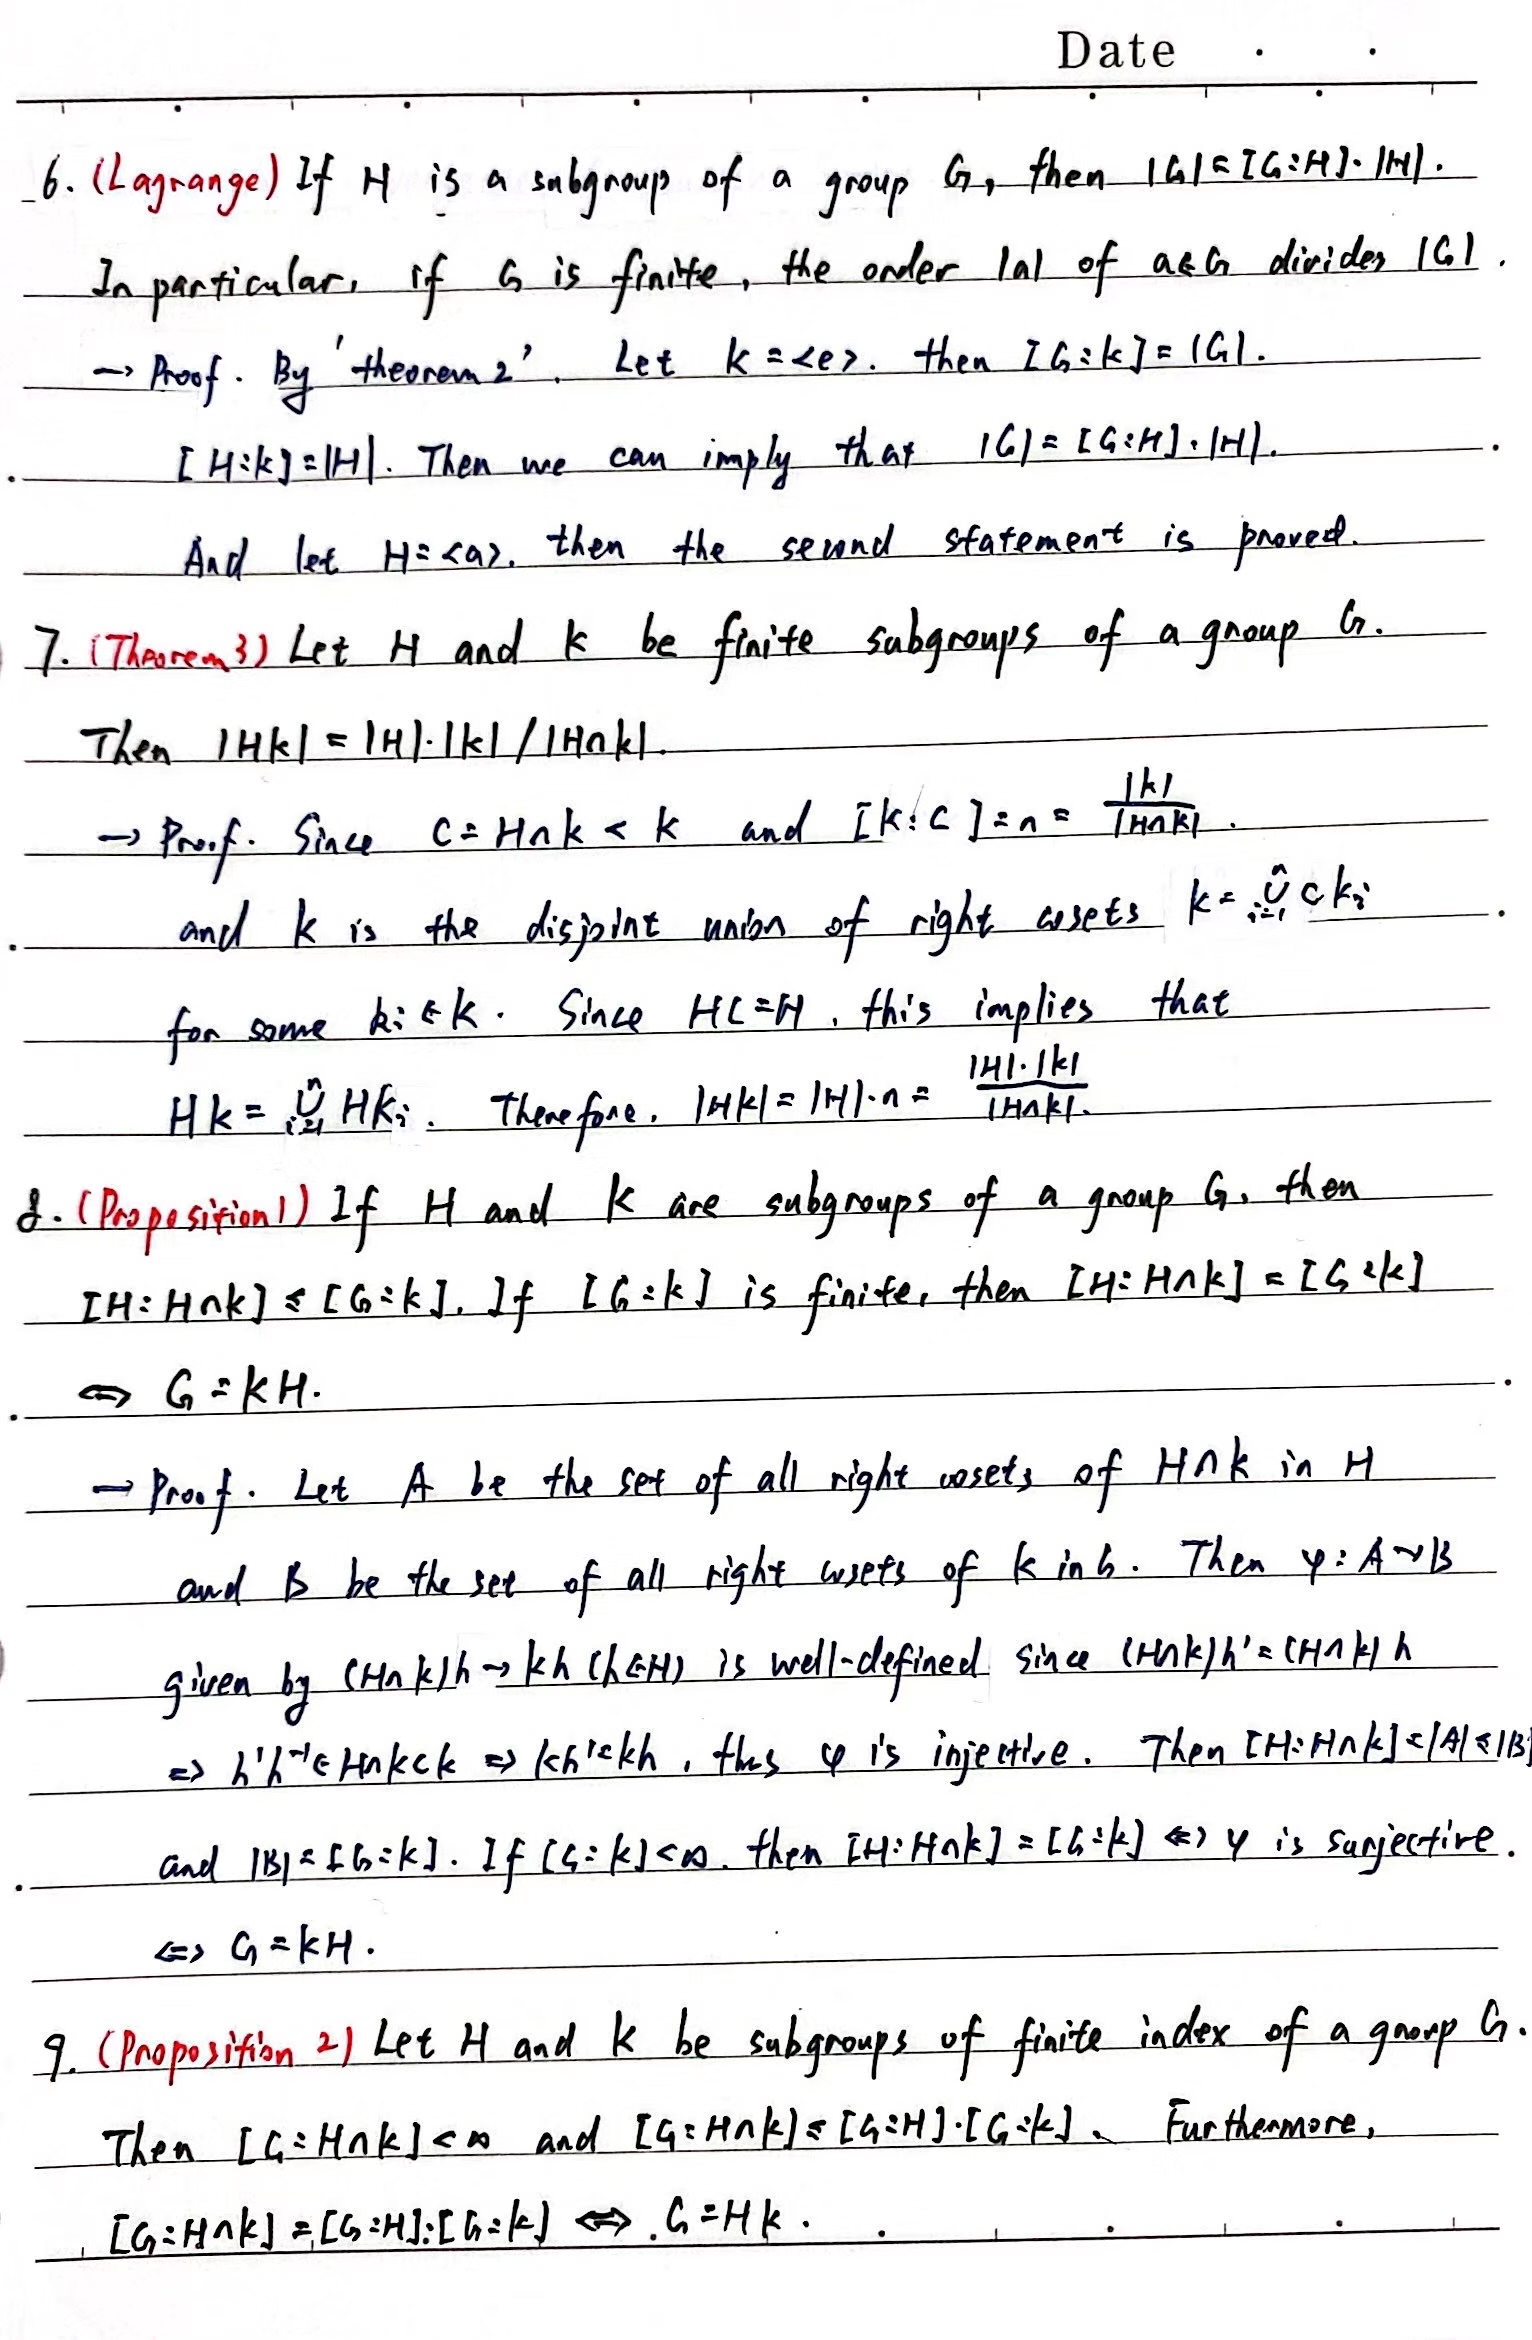 Date . .
6. (Lagrange) If H is a subgroup of a group G, then |G| = [G:H]·|H|.
In particular, if G is finite, the order |a| of a∈G divides |G|.
→ Proof. By 'theorem 2'. Let K = <e>. then [G:K] = |G|.
[H:K] = |H|. Then we can imply that |G| = [G:H]·|H|.
And let H = <a>. then the second statement is proved.
7. (Theorem 3) Let H and K be finite subgroups of a group G.
Then |HK| = |H|·|K| / |H∩K|.
→ Proof. Since C = H∩K < K and [K:C] = n = |K|/|H∩K|.
and K is the disjoint union of right cosets K = ∪ⁿᵢ₌₁ CKᵢ
for some kᵢ ∈ K. Since HC = H, this implies that
HK = ∪ⁿᵢ₌₁ HKᵢ. Therefore. |HK| = |H|·n = |H|·|K|/|H∩K|.
8. (Proposition 1) If H and K are subgroups of a group G, then
[H:H∩K] ≤ [G:K]. If [G:K] is finite, then [H:H∩K] = [G:K]
⇔ G = KH.
→ Proof. Let A be the set of all right cosets of H∩K in H
and B be the set of all right cosets of K in G. Then φ: A→B
given by (H∩K)h → Kh (h∈H) is well-defined since (H∩K)h' = (H∩K)h
⇒ h'h⁻¹ ∈ H∩K<K ⇒ Kh' = Kh, thus φ is injective. Then [H:H∩K] = |A| ≤ |B|
and |B| = [G:K]. If [G:K] < ∞. then [H:H∩K] = [G:K] ⇔ φ is surjective.
⇔ G = KH.
9. (Proposition 2) Let H and K be subgroups of finite index of a group G.
Then [G:H∩K] < ∞ and [G:H∩K] ≤ [G:H]·[G:K]. Furthermore,
[G:H∩K] = [G:H]·[G:K] ⇔ G = HK.